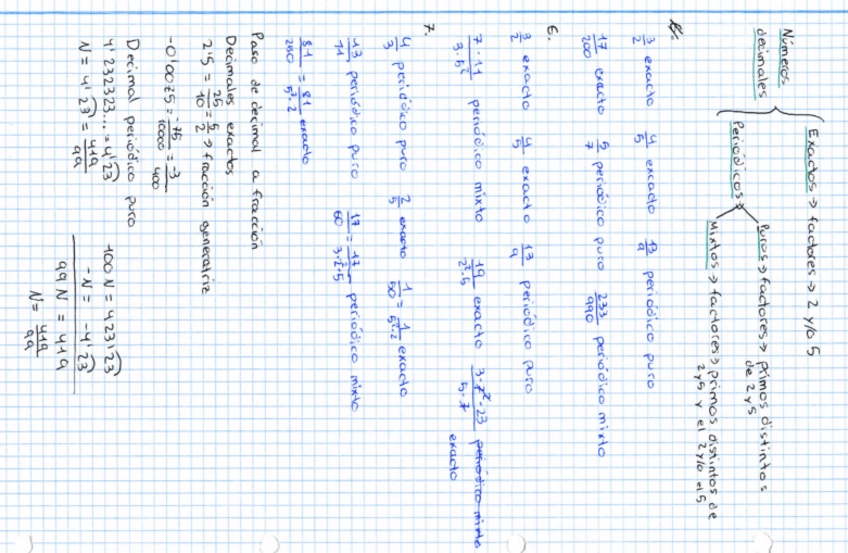 Números decimales
Exactos → factores → 2 y/o 5
Periódicos →
Puros → factores → primos distintos de 2 y 5
Mixtos → factores → primos distintos de 2 y 5 y el 2 y/o el 5
3/2 exacto 4/5 excacto 13/9 periódico puro
17/200 exacto 5/7 periódico puro 233/990 periódico mixto
6.
3/2 exacto 4/5 exacto 13/9 periódico puro
7·11/3·5² periódico mixto 19/2²·5 exacto 3·7²·23/5·7 periódico mixto
exacto
7.
4/3 periódico puro 2/5 exacto 1/50 = 1/5²·2 exacto
13/11 periódico puro 17/60 = 17/3·2²·5 periódico mixto
81/250 = 81/5³·2 exacto
Paso de decimal a fracción
Decimales exactos
2'5 = 25/10 = 5/2 → fracción generatriz
-0'0075 = -75/10000 = -3/400
Decimal periódico puro
4'232323... = 4'23 100 N = 423'23
N = 4'23 = 419/99 - N = -4'23
99 N = 419
N = 419/99